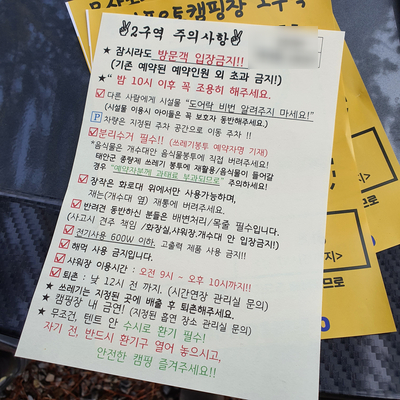 2구역 주의사항
★ 잠시라도 방문객 입장금지!!
(기존 예약된 예약인원 외 초과 금지!)
★ "밤 10시 이후 꼭 조용히 해주세요.
다른 사람에게 시설물 "도어락 비번 알려주지 마세요!"
(시설물 이용시 아이들은 꼭 보호자 동반해주세요.)
P 차량은 지정된 주차 공간으로 이동 주차 !!
분리수거 필수!! (쓰레기봉투 예약자명 기재)
"음식물은 개수대안 음식물봉투에 직접 버려주세요.
태안군 종량제 쓰레기 봉투에 재활용/음식물이 들어갈
경우 "예약자분께 과태료 부과되므로" 주의하세요!
장작은 화로대 위에서만 사용가능하며,
재는(개수대 옆) 재통에 버려주세요.
반려견 동반하신 분들은 배변처리/목줄 필수입니다.
(사고시 견주 책임 /화장실,샤워장,개수대 안 입장금지!)
전기사용 600W 이하. 고출력 제품 사용 금지!!
해먹 사용 금지입니다.
샤워장 이용시간 : 오전 9시 ~ 오후 10시까지!!
퇴촌 : 낮 12시 전 까지. (시간연장 관리실 문의)
★ 쓰레기는 지정된 곳에 배출 후 퇴촌해주세요.
★ 캠핑장 내 금연! (지정된 흡연 장소 관리실 문의)
★ 무조건, 텐트 안 수시로 환기 필수!
자기 전, 반드시 환기구 열어 놓으시고,
안전한 캠핑 즐겨주세요!!